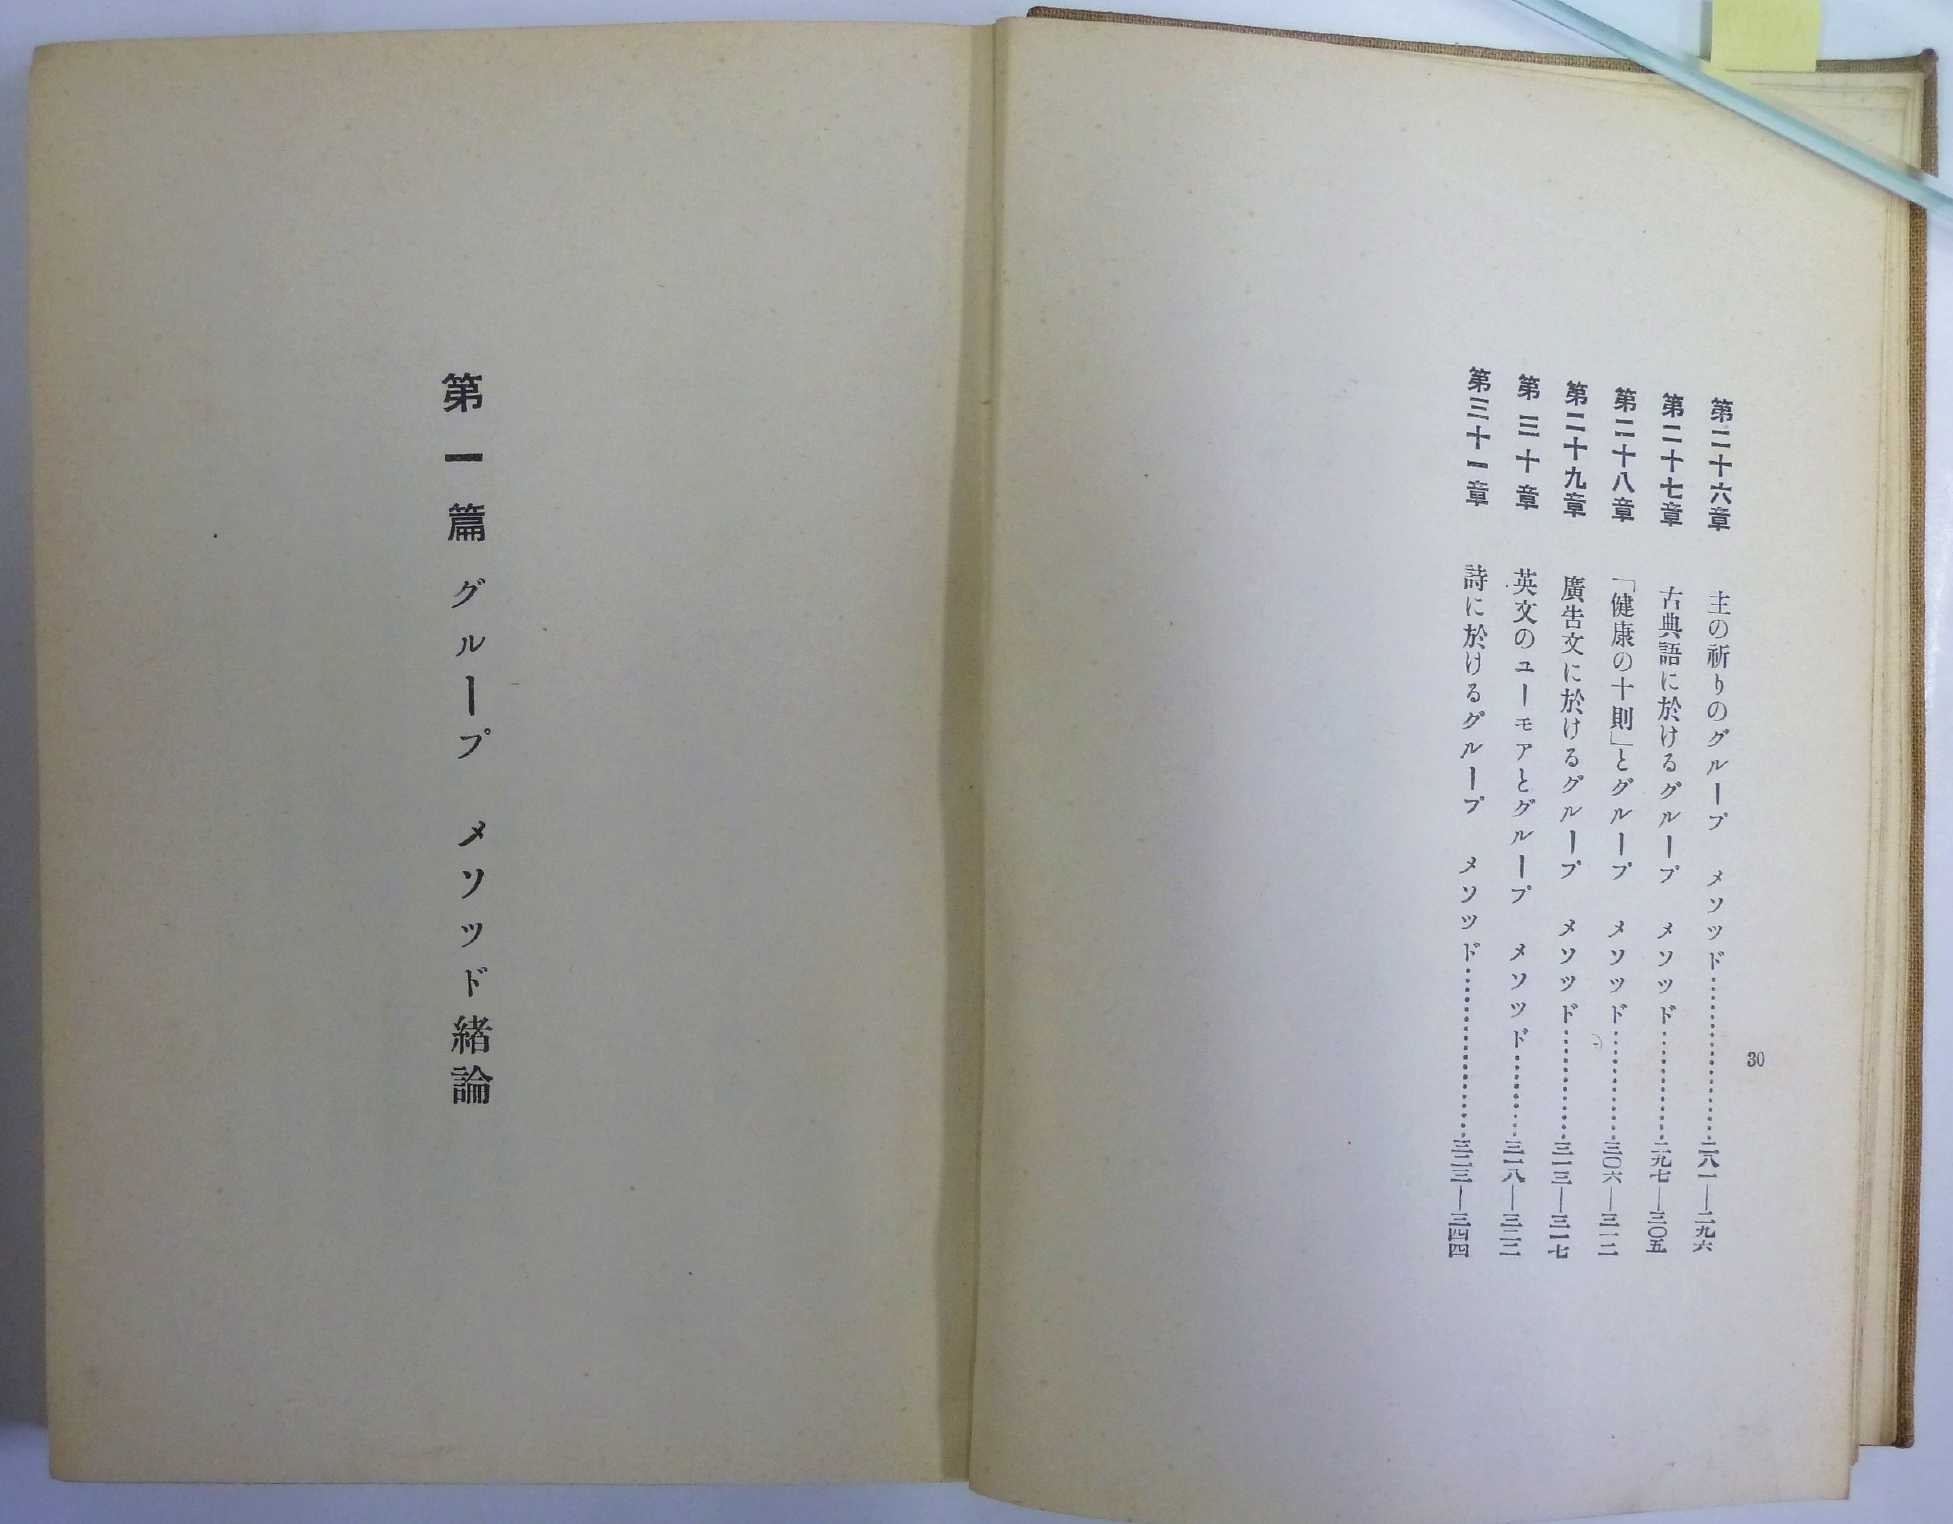 第二十六章 主の祈りのグループ メソツド…………………二八一―二九六
第二十七章 古典語に於けるグループ メソツド…………二九七―三〇五
第二十八章 「健康の十則」とグループ メソツド…………三〇六―三一二
第二十九章 廣告文に於けるグループ メソツド…………三一三―三一七
第三十章 英文のユーモアとグループ メソツド…………三一八―三二二
第三十一章 詩に於けるグループ メソツド…………………三二三―三四四
30
第一篇 グループ メソツド緒論